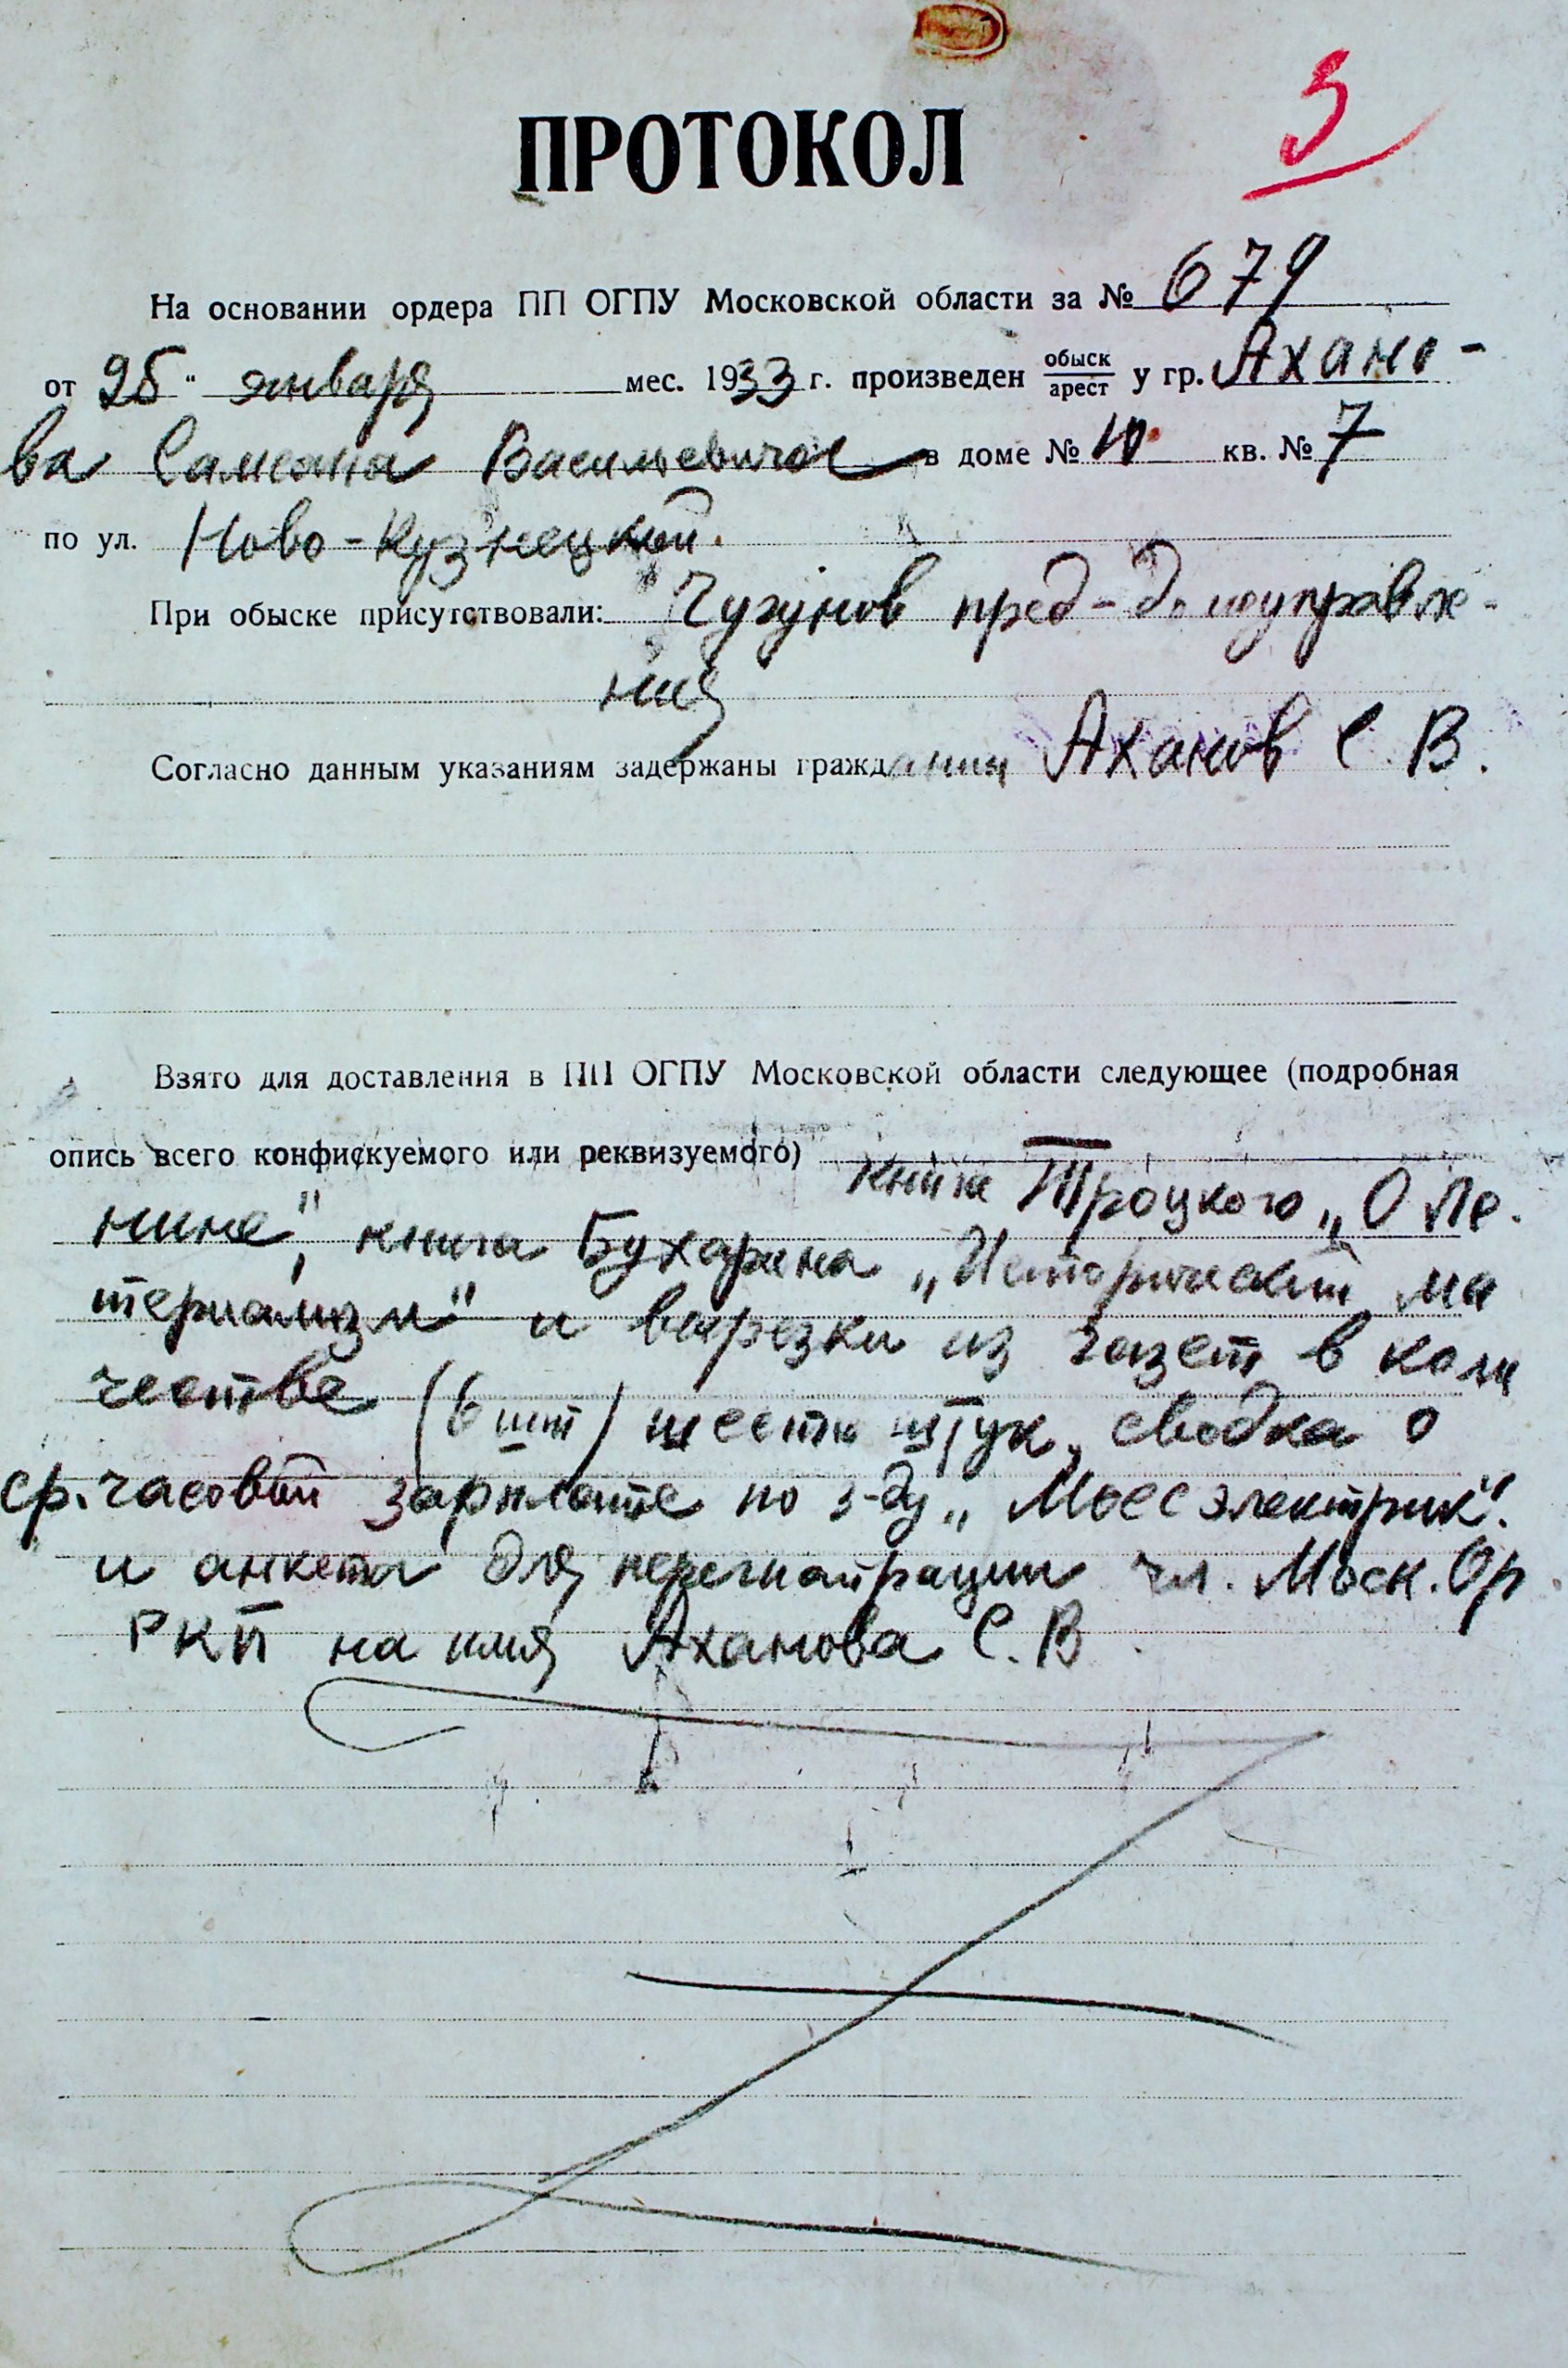 3
ПРОТОКОЛ
На основании ордера ПП ОГПУ Московской области за № 679
от 25 " января мес. 1933 г. произведен обыск/арест у гр. Ахано-
ва Самсона Васильевича в доме № 10 кв. № 7
по ул. Ново-Кузнецкой.
При обыске присутствовали: Чугунов пред-домоуправле-
ния
Согласно данным указаниям задержаны гражданин Аханов С. В.
Взято для доставления в ПП ОГПУ Московской области следующее (подробная
опись всего конфискуемого или реквизуемого) книга Троцкого „О Ле-
нине", книга Бухарина „Исторический ма
териализм" и вырезки из газет в коли
честве (6 шт) шесть штук, сводка о
ср. часовой зарплате по з-ду „Мосэлектрик".
и анкета для перегистрации чл. Моск. Ор.
РКП на имя Аханова С. В.